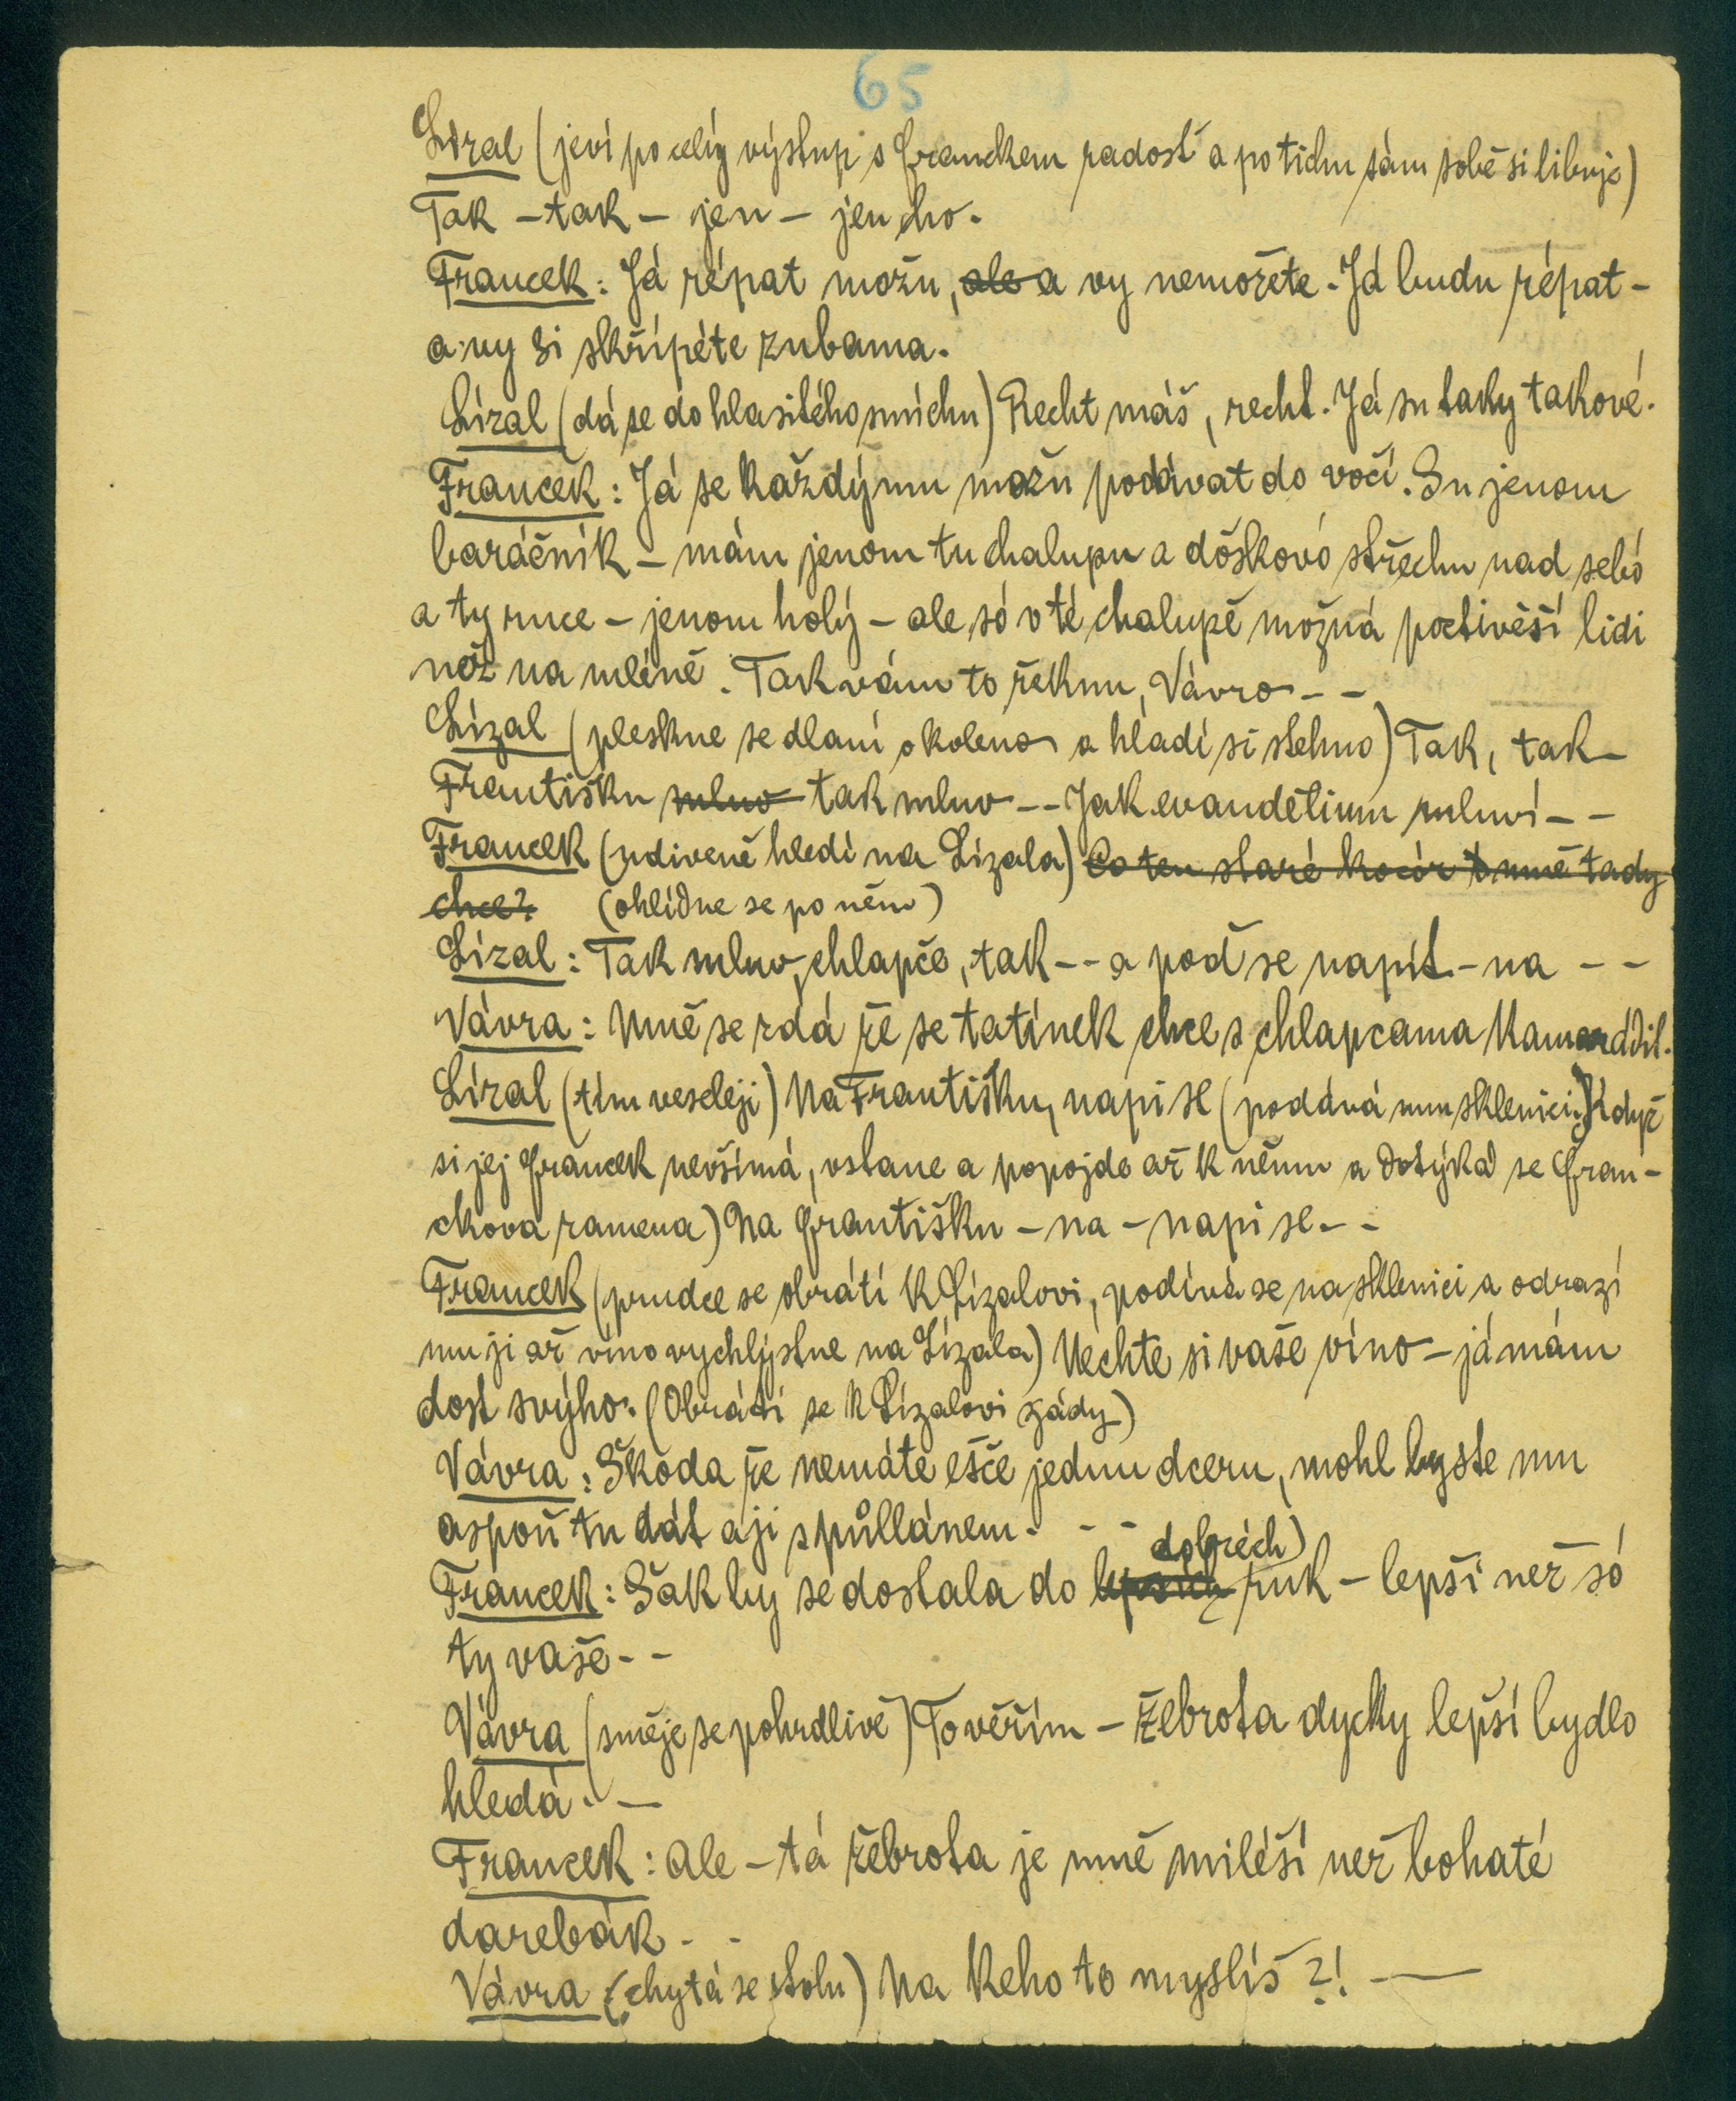 65
Lízal (jeví po celý výstup s Franckem radost a po tichu sám sobě si libuje)
Tak – tak – jen – jen ho.
Francek: Já répat možu, ale a vy nemožete. Já budu répat –
a vy si skřípéte zubama.
Lízal (dá se do hlasitého smíchu) Recht máš, recht. Já su taky takové.
Francek: Já se každýmu možu podívat do vočí. Su jenom
baráčník – mám jenom tu chalupu a dóškovó střechu nad sebó
a ty ruce – jenom holý – ale só v té chalupě možná poctivěší lidi
než na mléně. Tak vám to řeknu, Vávro – –
Lízal (pleskne se dlaní o koleno a hladí si stehno) Tak, tak –
Františku mluv tak mluv – – Jak evandělium mluví – –
Francek (udiveně hledí na Lízala) Co ten staré kocór s mně tady
chce? (ohlídne se po něm)
Lízal: Tak mluv, chlapče, tak – – a poď se napít – na – –
Vávra: Mně se zdá že se tatínek chce s chlapcama kamarádit.
Lízal (tím veseleji) Na Františku, napi se (podává mu sklenici. Když
si jej Francek nevšímá, vstane a popojde až k němu a dotýká se Fran–
ckova ramena) Na Františku – na – napi se – –
Francek (prudce se obrátí k Lízalovi, podívá se na sklenici a odrazí
mu ji až víno vychlýstne na Lízala) Nechte si vaše víno – já mám
dost svýho. (Obrátí se k Lízalovi zády)
Vávra: Škoda že nemáte ešče jednu dceru, mohl byste mu
aspoň tu dát aji s půllánem. – –
dobréch)
Francek: Šak by se dostala do lepších ruk – lepší než só
ty vaše – –
Vávra (směje se pohrdlivě) To věřím – žebrota dycky lepší bydlo
hledá. –
Francek: Ale – tá žebrota je mně miléší než bohaté
darebák – –
Vávra (chytá se stolu) Na keho to myslíš?! –